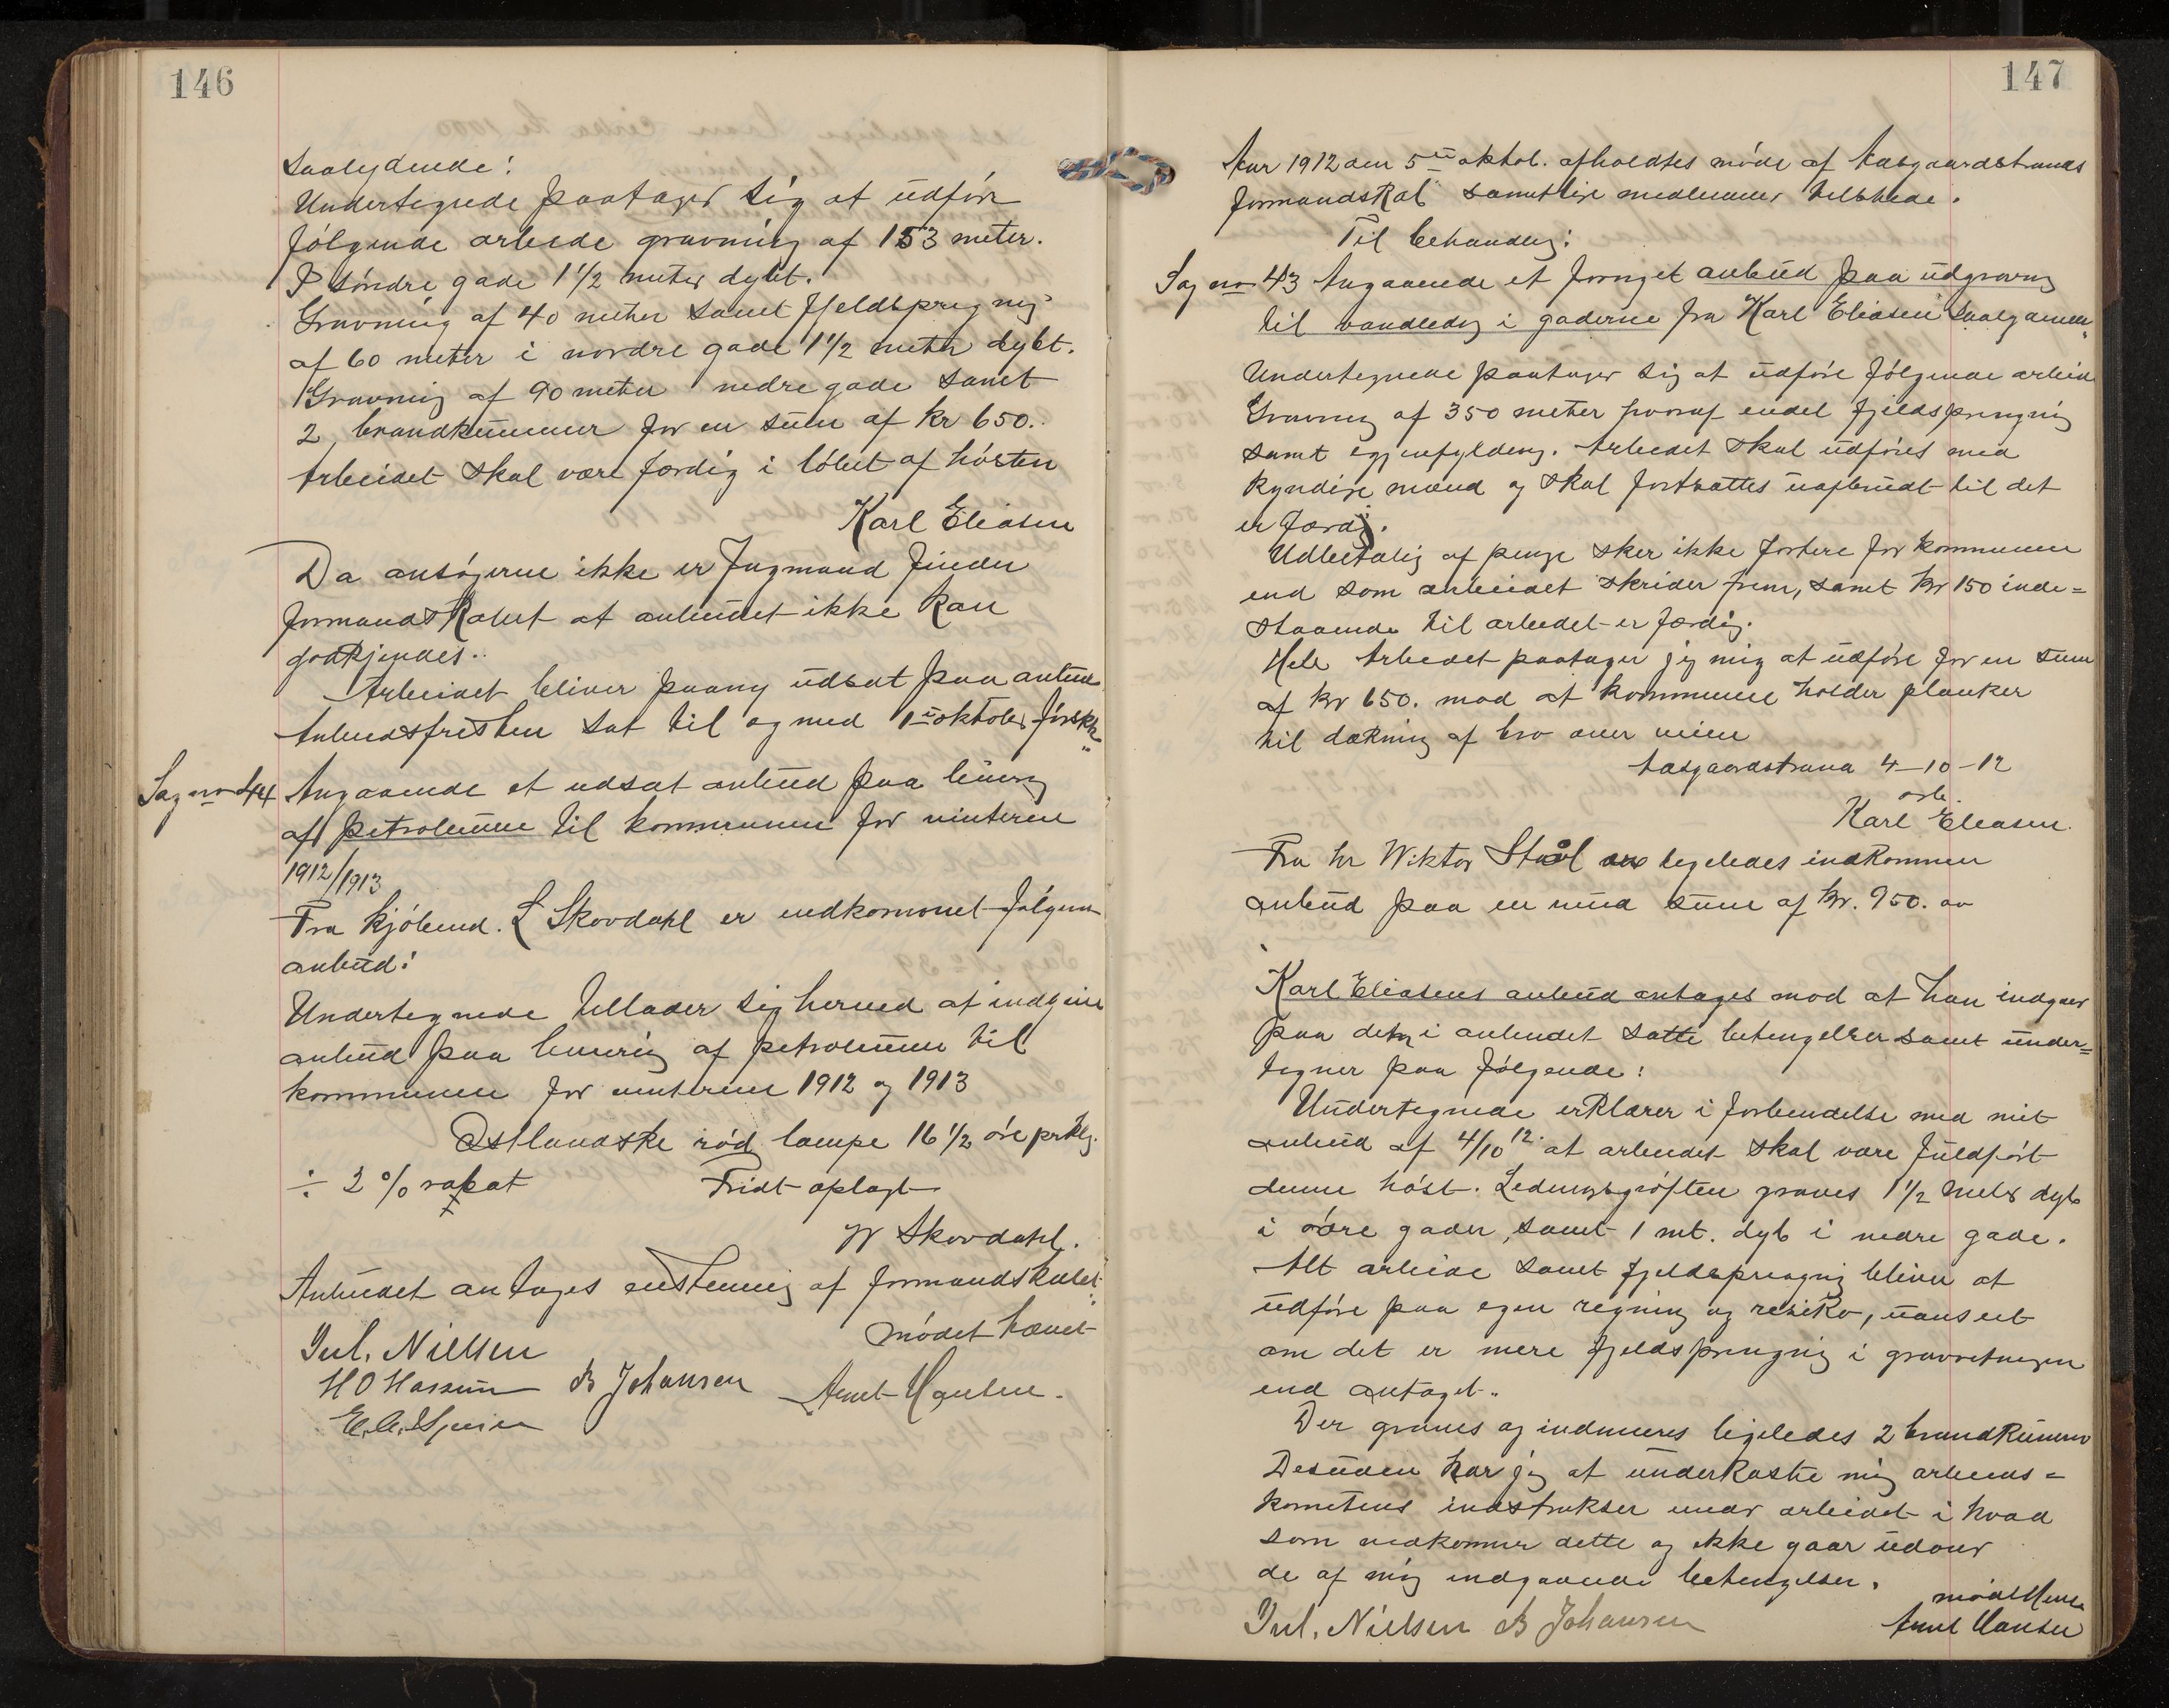 146
Saalydende:
Undertegnede paatager sig at udföre
følgende arbeide gravning af 153 meter.
I söndre gade 1 1/2 meter dybt.
Gravning af 40 meter samt fjeldsprægning
af 60 meter i nordre gade 1 1/2 meter dybt.
Gravning af 90 meter i nedre gade samt
2 brandkummer for en sum af kr 650.
Arbeidet skal være færdig i løbet af hösten
Karl Eliasen
Da ansøgerne ikke er fagmand finder
formandskabet at anbudet ikke kan
godkjendes.
Arbeidet bliver paany udsat paa anbud
Anbudsfristen sat til og med 1ste oktober førstk.
Sag no 44 Angaaende et udsat anbud paa levering
af petroleum til kommunen for vinteren
1912/1913
Fra kjøbmd. L Skovdahl er indkommet følgende
anbud:
Undertegnede tillader sig herved at indgive
anbud paa levering af petroleum til
kommunen for vinteren 1912 og 1913
Östlandske rød lampe 16 1/2 øre pr klg.
÷ 2 % rabat Fridt oplagt
W Skovdahl.
Anbudet antages enstemmig af formandskabet.
Mødet hævet
Jul. Nielsen
H O Hassum B Johansen Arnt Hansen.
147
Aar 1912 den 5te oktob. afholdtes møde af Aasgaardstrands
formandskab samtlige medlemmer tilstede.
Til behandling:
Sag no 43 Angaaende et fornyet anbud paa udgravning
til vandledning i gaderne fra Karl Eliasen saalydende
Undertegnede paatager sig at udføre følgende arbeide
Gravning af 350 meter hvoraf endel fjeldsprengning
samt igjenfyldning. Arbeidet skal udføres med
kyndige mænd og skal fortsættes uafbrudt til det
er færdig.
Udbetaling af penge sker ikke fortere for kommunen
end som arbeidet skrider frem, samt kr 150 inde=
staaende til arbeidet er færdig.
Hele Arbeidet paatager jeg mig at udføre for en sum
af kr 650. mod at kommunen holder planker
til dækning af bro over veien
Aasgaardstrand 4-10-12
arb.
Karl Eliasen.
Fra hr Wiktor Staal er ligeledes indkommen
anbud paa en sum af kr. 950.
Karl Eliasens anbud antages mod at han indgaar
paa den i anbudet satte betingelser samt under=
tegner paa følgende:
Undertegnede erklærer i forbindelse med mit
anbud af 4/10 12. at arbeidet skal være fuldført
denne høst. Ledningsgrøften graves 1 1/2 meter dyb
i øvre gader, samt 1 mt. dyb i nedre gade.
Alt arbeide samt fjeldsprengning bliver at
udføre paa egen regning og resiko, uanseet
om det er mere fjeldsprengning i gravretningen
end antaget.
Der graves og indmures ligeledes 2 brandkummer
Desuden har jeg at underkaste mig arbeids=
kometens indstrukser under arbeidet i hvad
som vedkommer dette og ikke gaar udover
de af mig indgaaende betingelser.
mødet hævet
Jul. Nielsen B Johansen Arnt Hansen